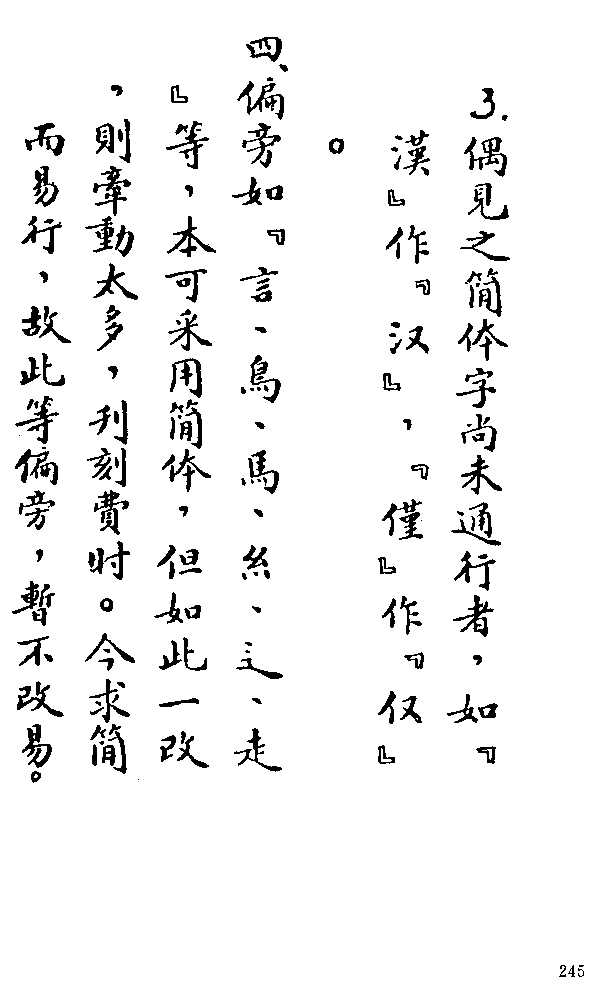 3.偶見之简体字尚未通行者，如『
漢』作『汉』，『僅』作『仅』
。
四、偏旁如『言、鳥、馬、糸、辶、走
』等，本可采用简体，但如此一改
，則牽動太多，刋刻費时。今求简
而易行，故此等偏旁，暫不改易。
245